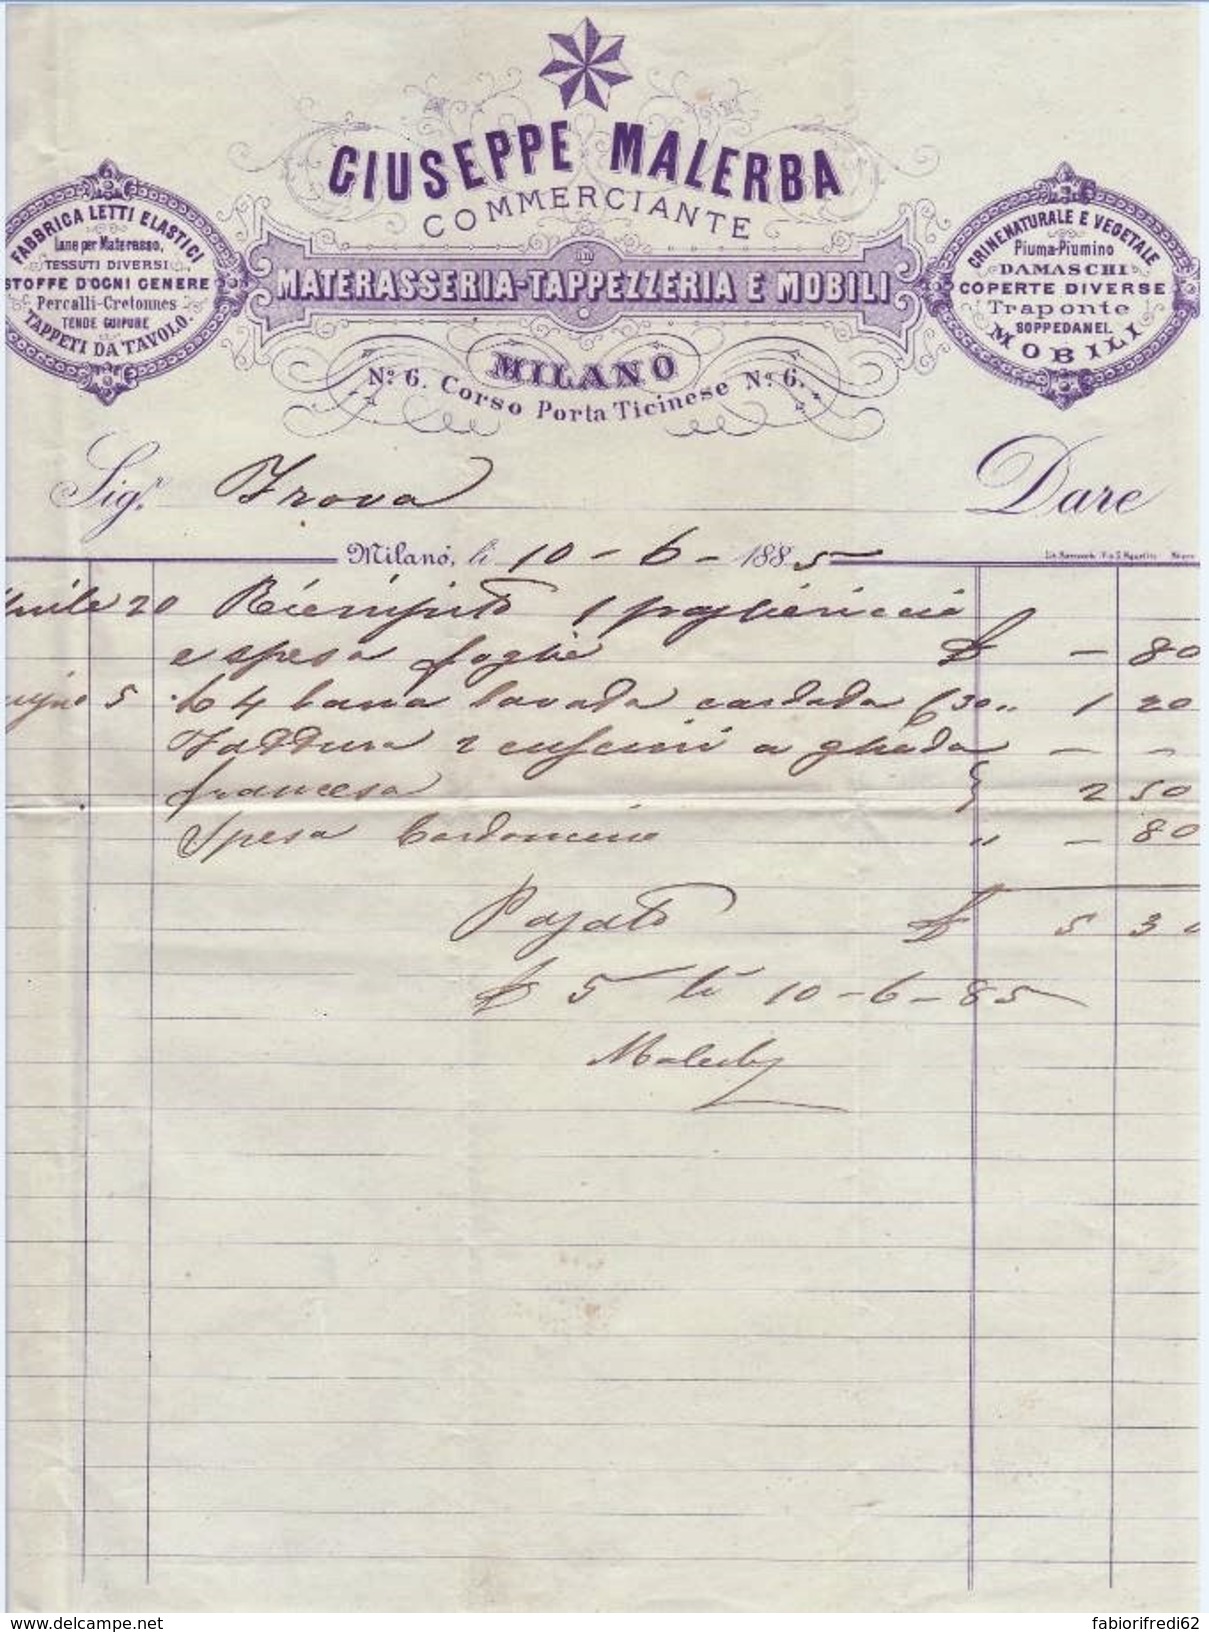 GIUSEPPE MALERBA
COMMERCIANTE
IN
MATERASSERIA-TAPPEZZERIA E MOBILI
MILANO
Nº 6. Corso Porta Ticinese Nº 6.
FABBRICA LETTI ELASTICI
Lane per Materasso,
TESSUTI DIVERSI
STOFFE D'OGNI GENERE
Percalli-Cretonnes
TENDE GUIPURE
TAPPETI DA TAVOLO.
CRINE NATURALE E VEGETALE
Piuma-Piumino
DAMASCHI
COPERTE DIVERSE
Traponte
SOPPEDANEI.
MOBILI
Sigr. Dare
Milano, li 10 - 6 - 1885
20 Riempito 1 pagliericcio
e spesa foglie £ - 80
5 4 lana lavada cardada 30 " 1 20
2 cuscini a
francesa 2 50
Spesa " - 80
Pagato £ 5 30
£ 5 li 10-6-85
Malerba
www.delcampe.net
fabiorifredi62